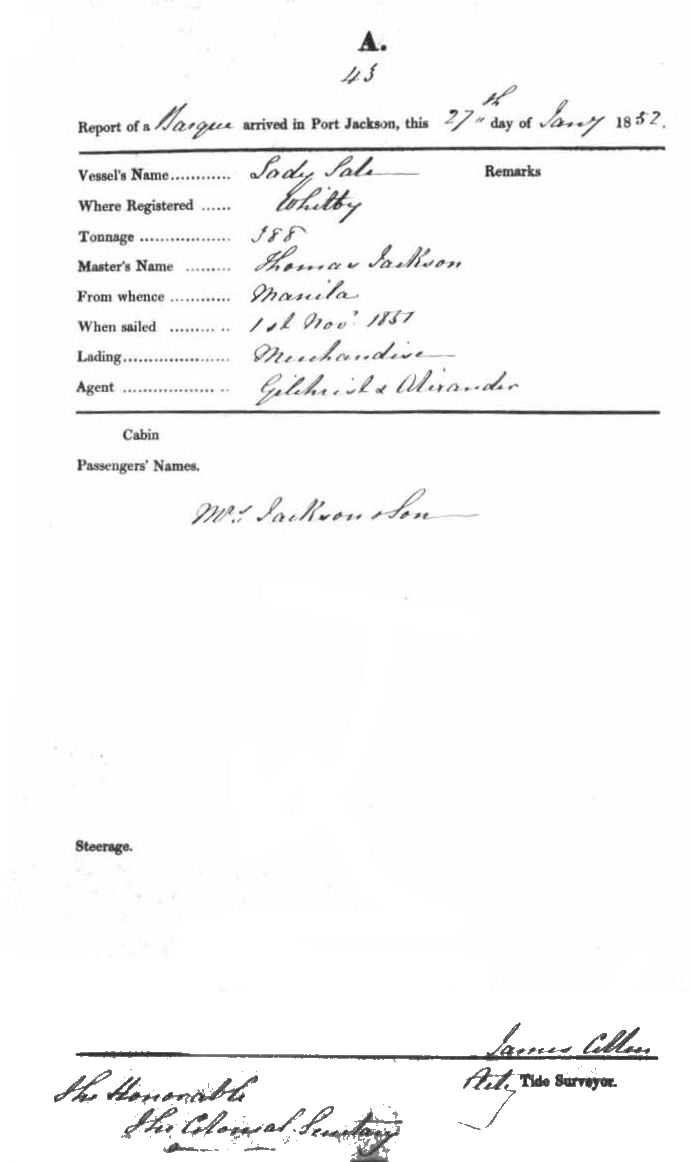 A.
43
Report of a Barque arrived in Port Jackson, this 27th day of Jany 1852.
Vessel's Name............ Lady Sale Remarks
Where Registered ...... Whitby
Tonnage .................. 388
Master's Name ......... Thomas Jackson
From whence ............ Manila
When sailed ......... .. 1st Novr 1851
Lading..................... Merchandise
Agent .................. .. Gilchrist & Alexander
Cabin
Passengers' Names.
Mrs Jackson & Son
Steerage.
James
Actg Tide Surveyor.
The Honorable
The Colonial Secretary